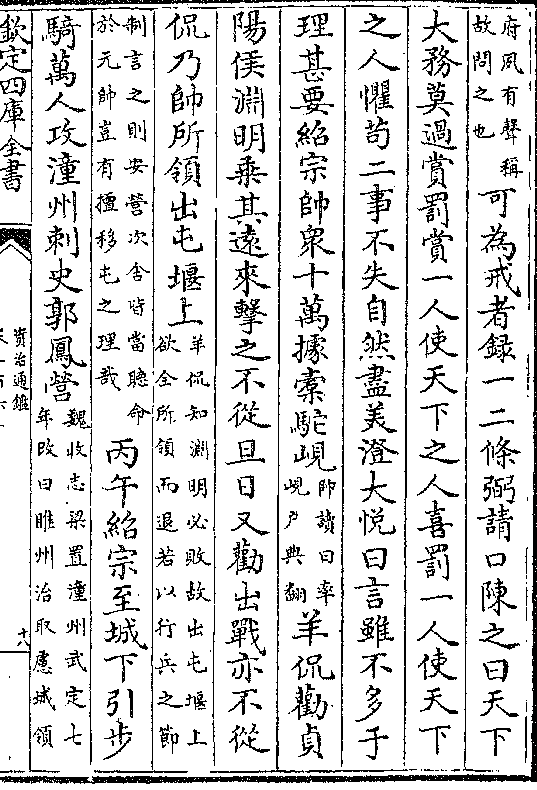 府夙有聲稱
故問之也
可為戒者録一二條弼請口陳之曰天下
大務莫過賞罰賞一人使天下之人喜罰一人使天下
之人懼苟二事不失自然盡美澄大悦曰言雖不多于
理甚要紹宗帥衆十萬據橐駝峴
帥讀曰率
峴户典翻
羊侃勸貞
陽侯淵明乗其遠來擊之不從旦日又勸出戰亦不從
侃乃帥所領出屯堰上
羊侃知淵明必敗故出屯堰上
欲全所領而退若以行兵之節
制言之則安營次舍皆當聽命
於元帥豈有擅移屯之理哉
丙午紹宗至城下引步
騎萬人攻潼州刺史郭鳳營
魏收志梁置潼州武定七
年改曰睢州治取慮城領
欽定四庫全書
資治通鑑
十八